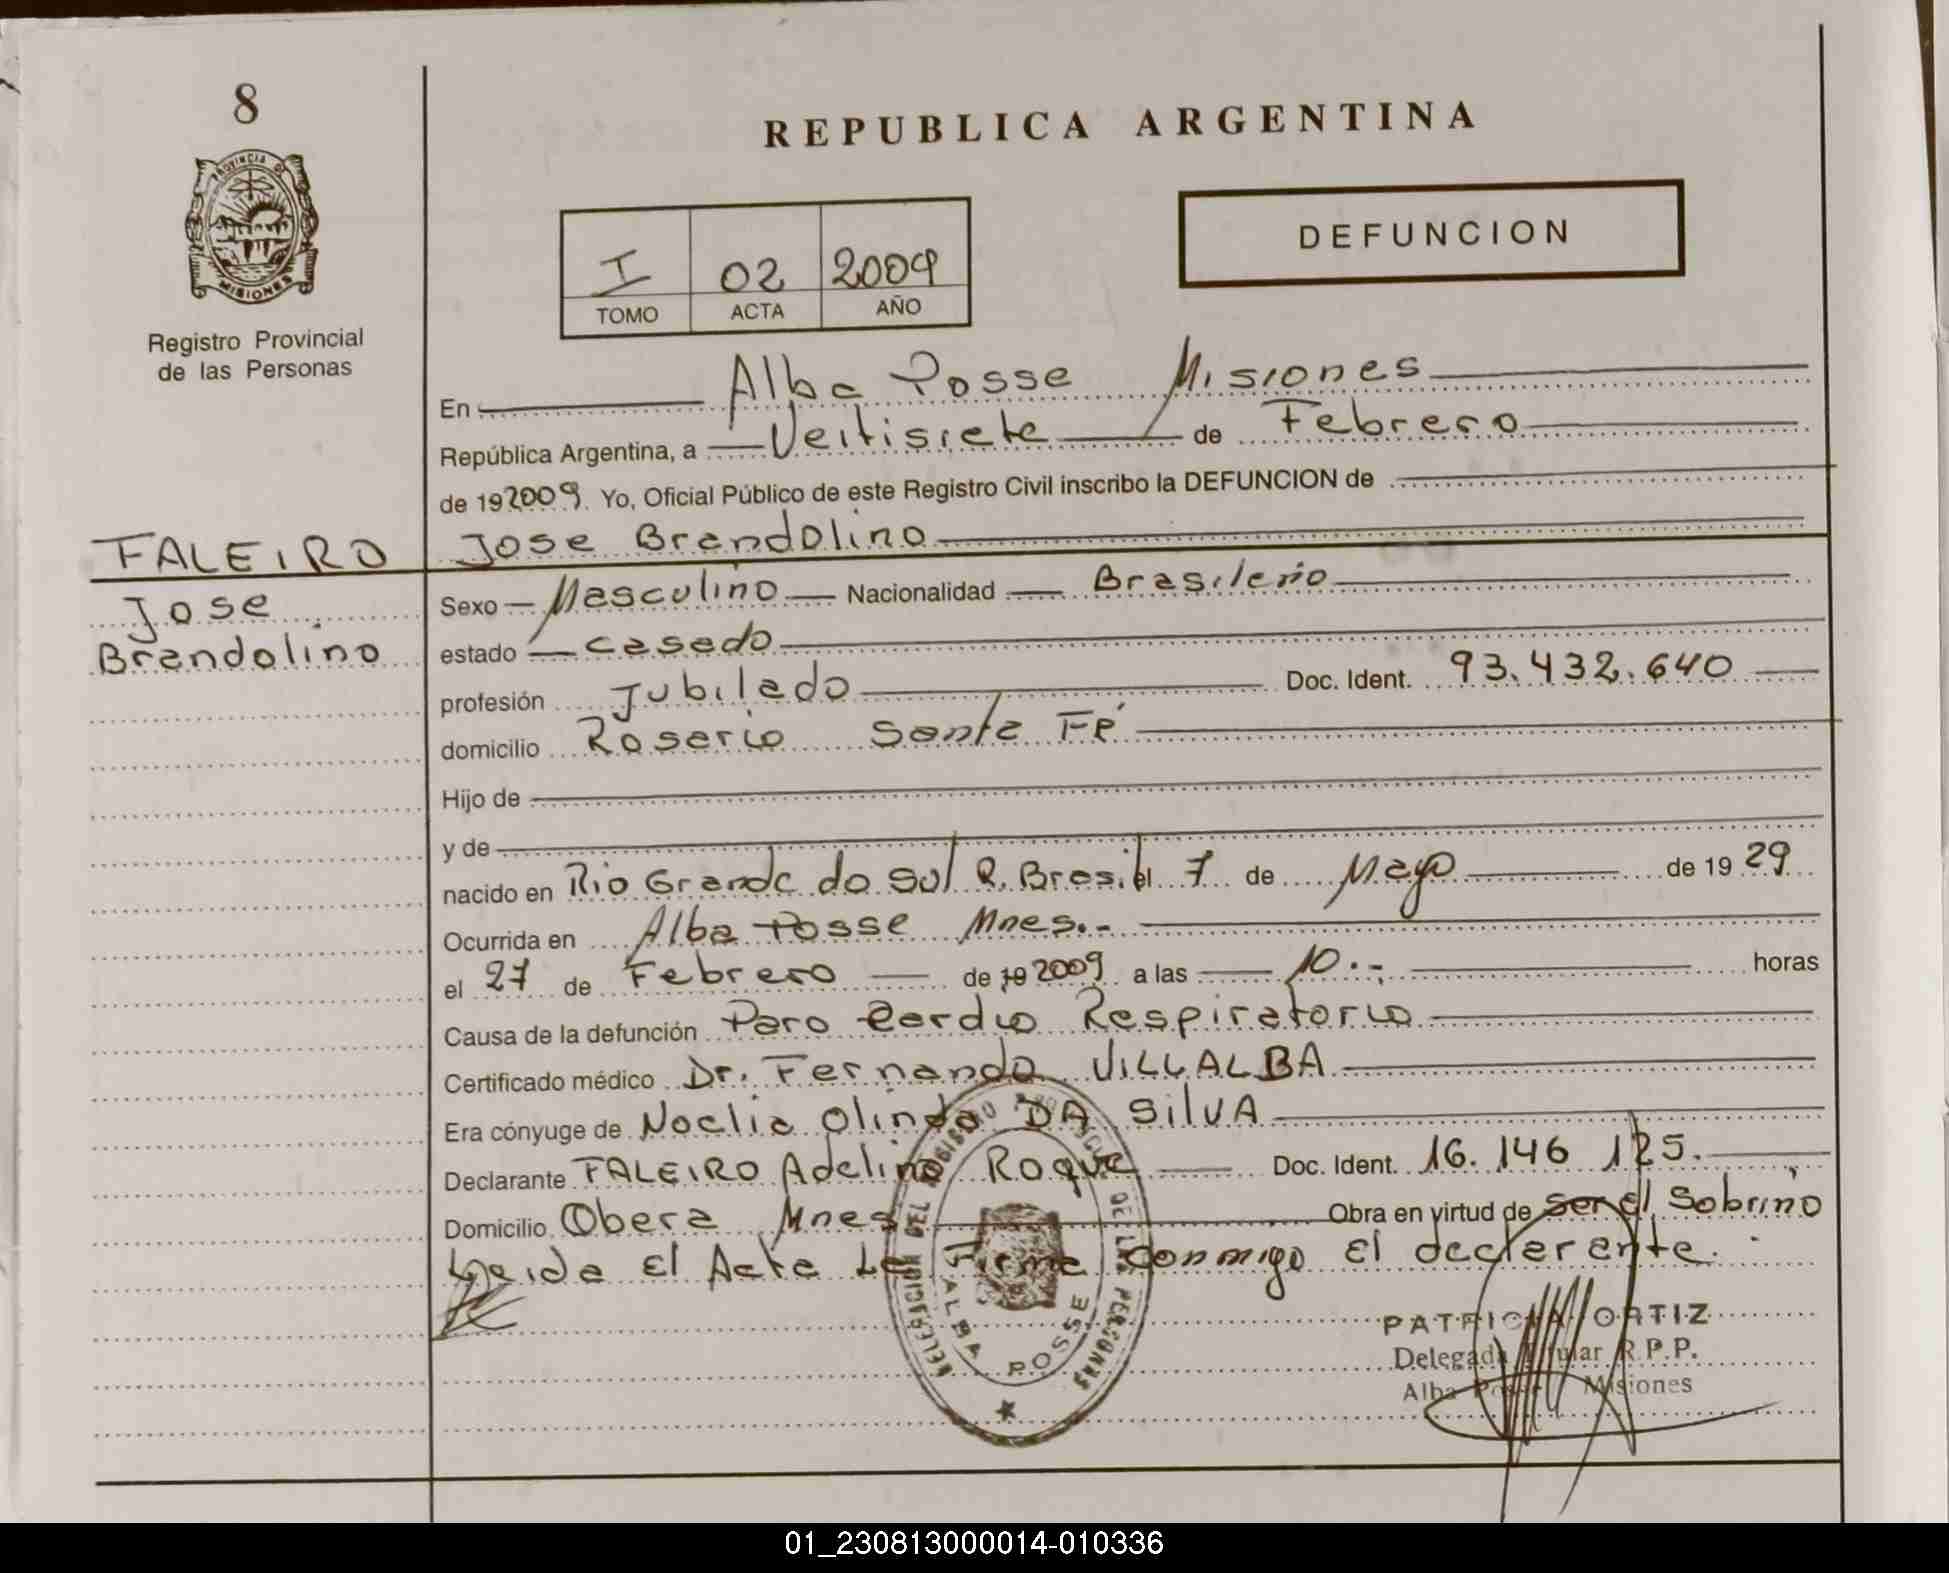 8
REPUBLICA ARGENTINA
PROVINCIA DE
MISIONES
Registro Provincial
de las Personas
DEFUNCION
I 02 2009
TOMO ACTA AÑO
En Alba Posse Misiones
República Argentina, a Veitisiete de Febrero
de 19 2009. Yo, Oficial Público de este Registro Civil inscribo la DEFUNCION de
FALEIRO Jose Brandolino
Jose
Brandolino
Sexo Masculino Nacionalidad Brasileño
estado casado
profesión Jubilado Doc. Ident. 93.432.640
domicilio Rosario Santa Fé
Hijo de
y de
nacido en Rio Grande do Sul R. Brasil el 7 de Mayo de 19 29
Ocurrida en Alba Posse Mnes.-
el 27 de Febrero de 19 2009 a las 10.- horas
Causa de la defunción Paro Cardio Respiratorio
Certificado médico Dr. Fernando VILLALBA
Era cónyuge de Noelia Olinda DA SilVA
Declarante FALEIRO Adelino Roque Doc. Ident. 16.146 125.
Domicilio Obera Mnes Obra en virtud de ser el sobrino
Leida El Acta La Firma conmigo El declarante.
DELEGACION DEL REGISTRO PROVINCIAL DE LAS PERSONAS
ALBA POSSE
PATRICIA ORTIZ
Delegada Titular R.P.P.
Alba Posse Misiones
01_230813000014-010336